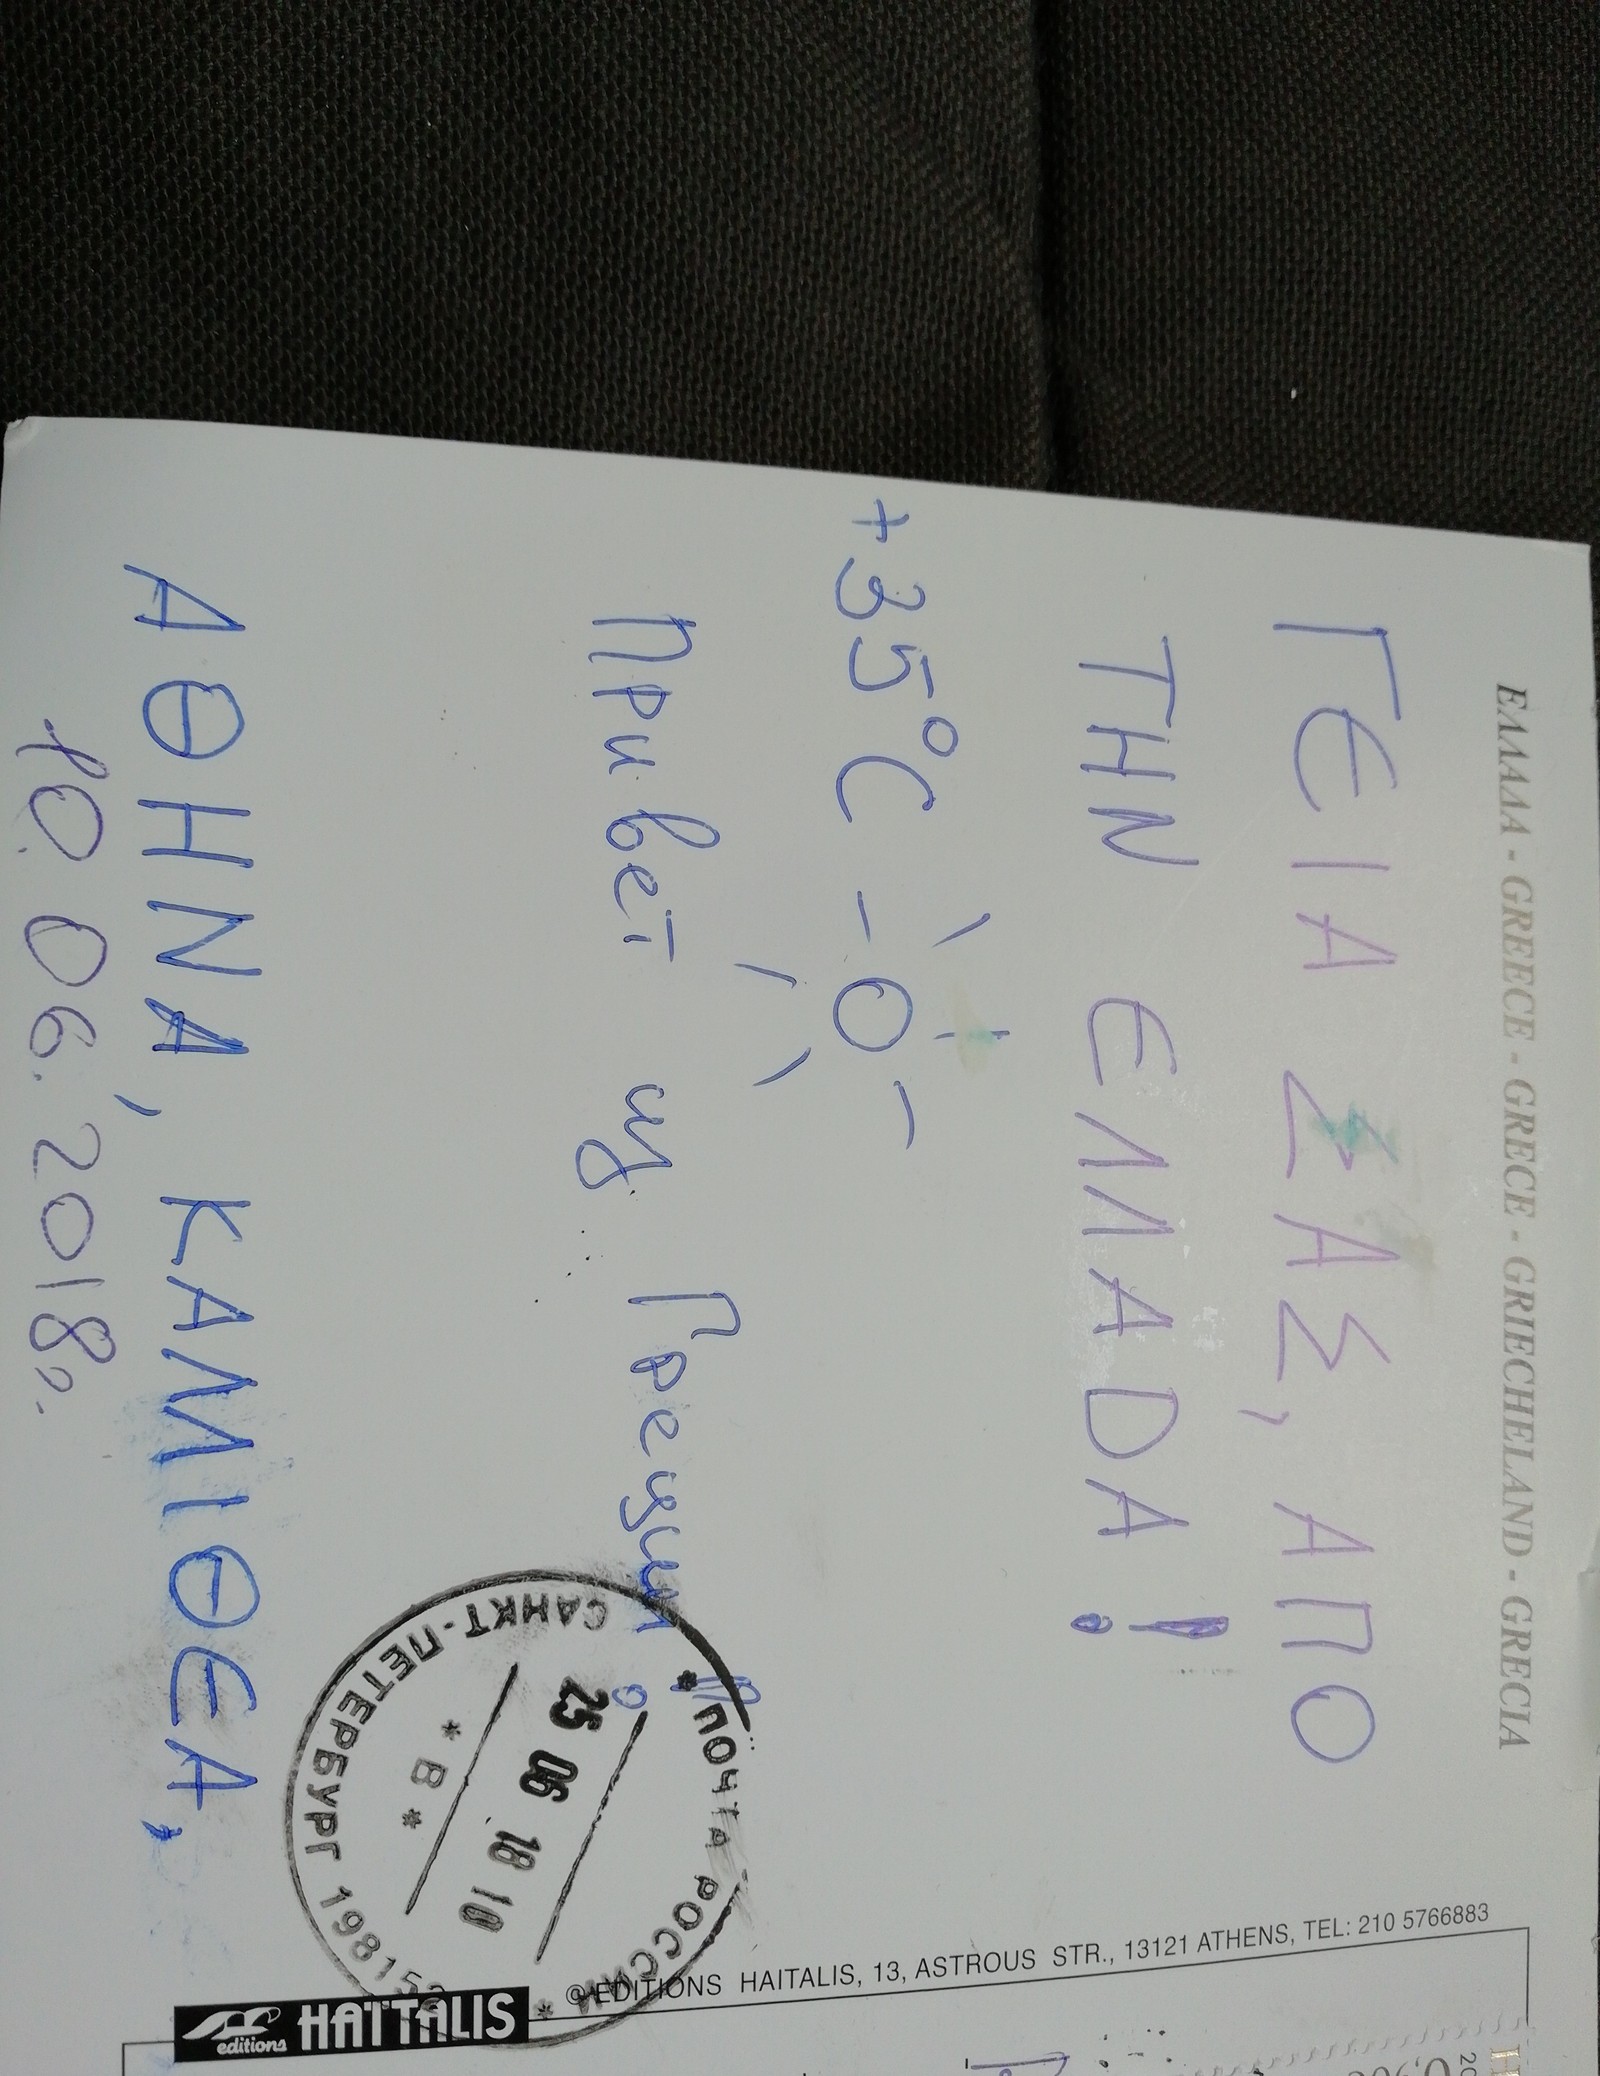 ΕΛΛΑΔΑ - GREECE - GRECE - GRIECHELAND - GRECIA
ΓΕΙΑ ΣΑΣ, ΑΠΟ
ΤΗΝ ΕΛΛADA!
+35°C
Привет из Греции!
ΑΘΗΝΑ, ΚΑΛΛΙΘΕΑ,
10.06.2018г.
* ПОЧТА РОССИИ *
САНКТ-ПЕТЕРБУРГ 198152
25 06 18 10
* В *
© EDITIONS HAITALIS, 13, ASTROUS STR., 13121 ATHENS, TEL: 210 5766883
HAITALIS
editions